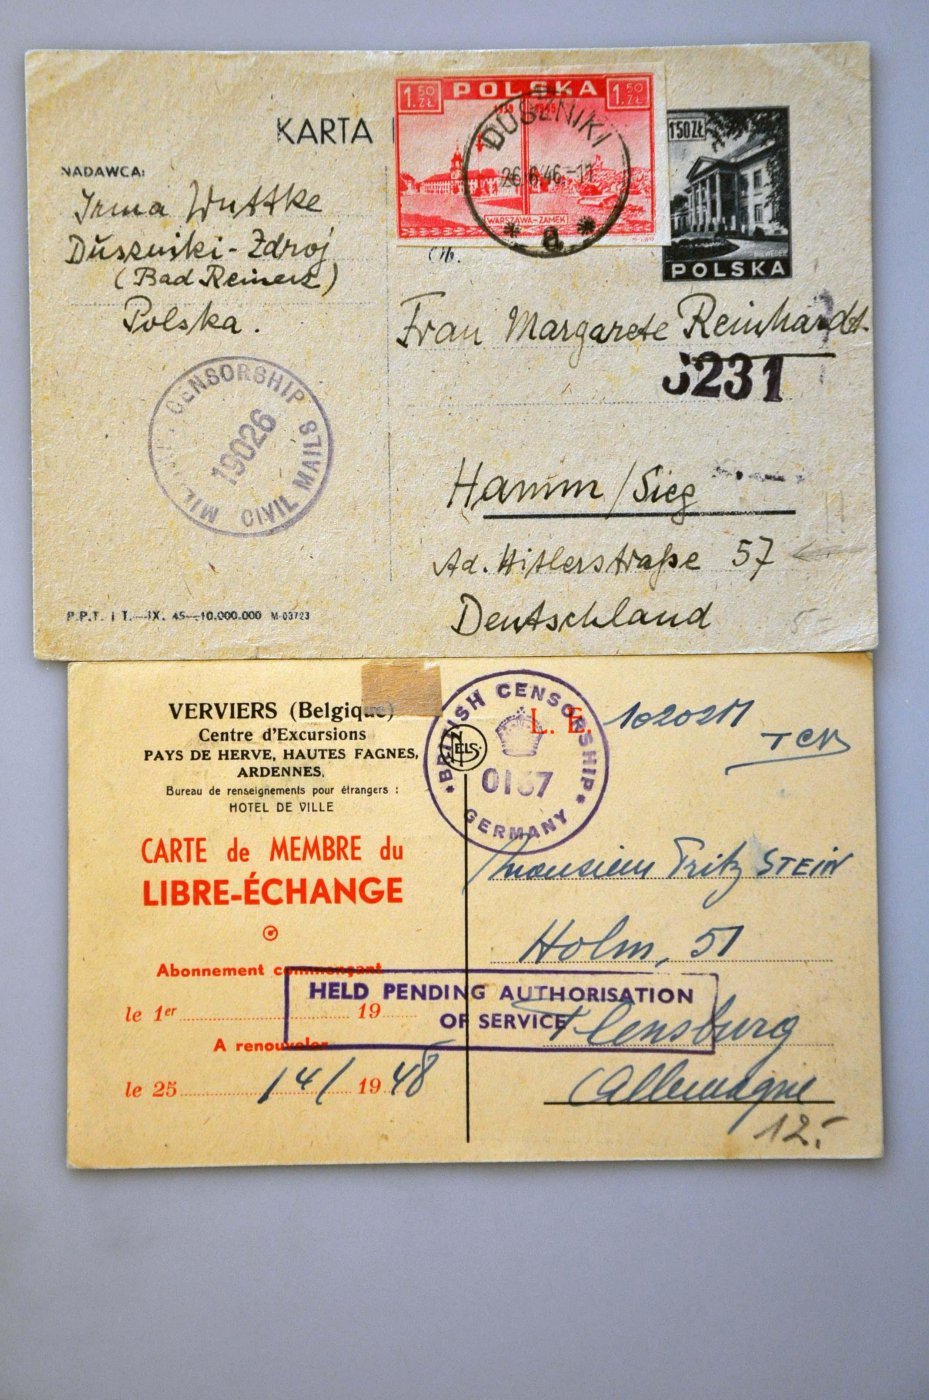 POLSKA
1.50 ZŁ
1.50 ZŁ
1939 1945
DUSZNIKI
26.6.46.-11
* a *
WARSZAWA-ZAMEK
1'50 ZŁ
BELWEDER
POLSKA
KARTA
NADAWCA:
Irma Wuttke
Duszniki-Zdroj
(Bad Reinerz)
Polska.
Frau Margarete Reinhardt.
3231
CENSORSHIP
19026
MIL
CIVIL MAILS
Hamm/Sieg
Ad. Hitlerstraße 57
Deutschland
5-
P.P.T. i T.—IX. 45—10.000.000 M-03723
VERVIERS (Belgique)
Centre d'Excursions
PAYS DE HERVE, HAUTES FAGNES,
ARDENNES.
Bureau de renseignements pour étrangers :
HOTEL DE VILLE
CARTE de MEMBRE du
LIBRE-ÉCHANGE
Abonnement commençant
le 1er 19
A renouveler
le 25 /4/ 1948
BRITISH CENSORSHIP
0137
GERMANY
ELS
L. E.
102021
Monsieur Fritz STEIN
Holm, 51
Flensburg
Allemagne
HELD PENDING AUTHORISATION
OF SERVICE
12.-